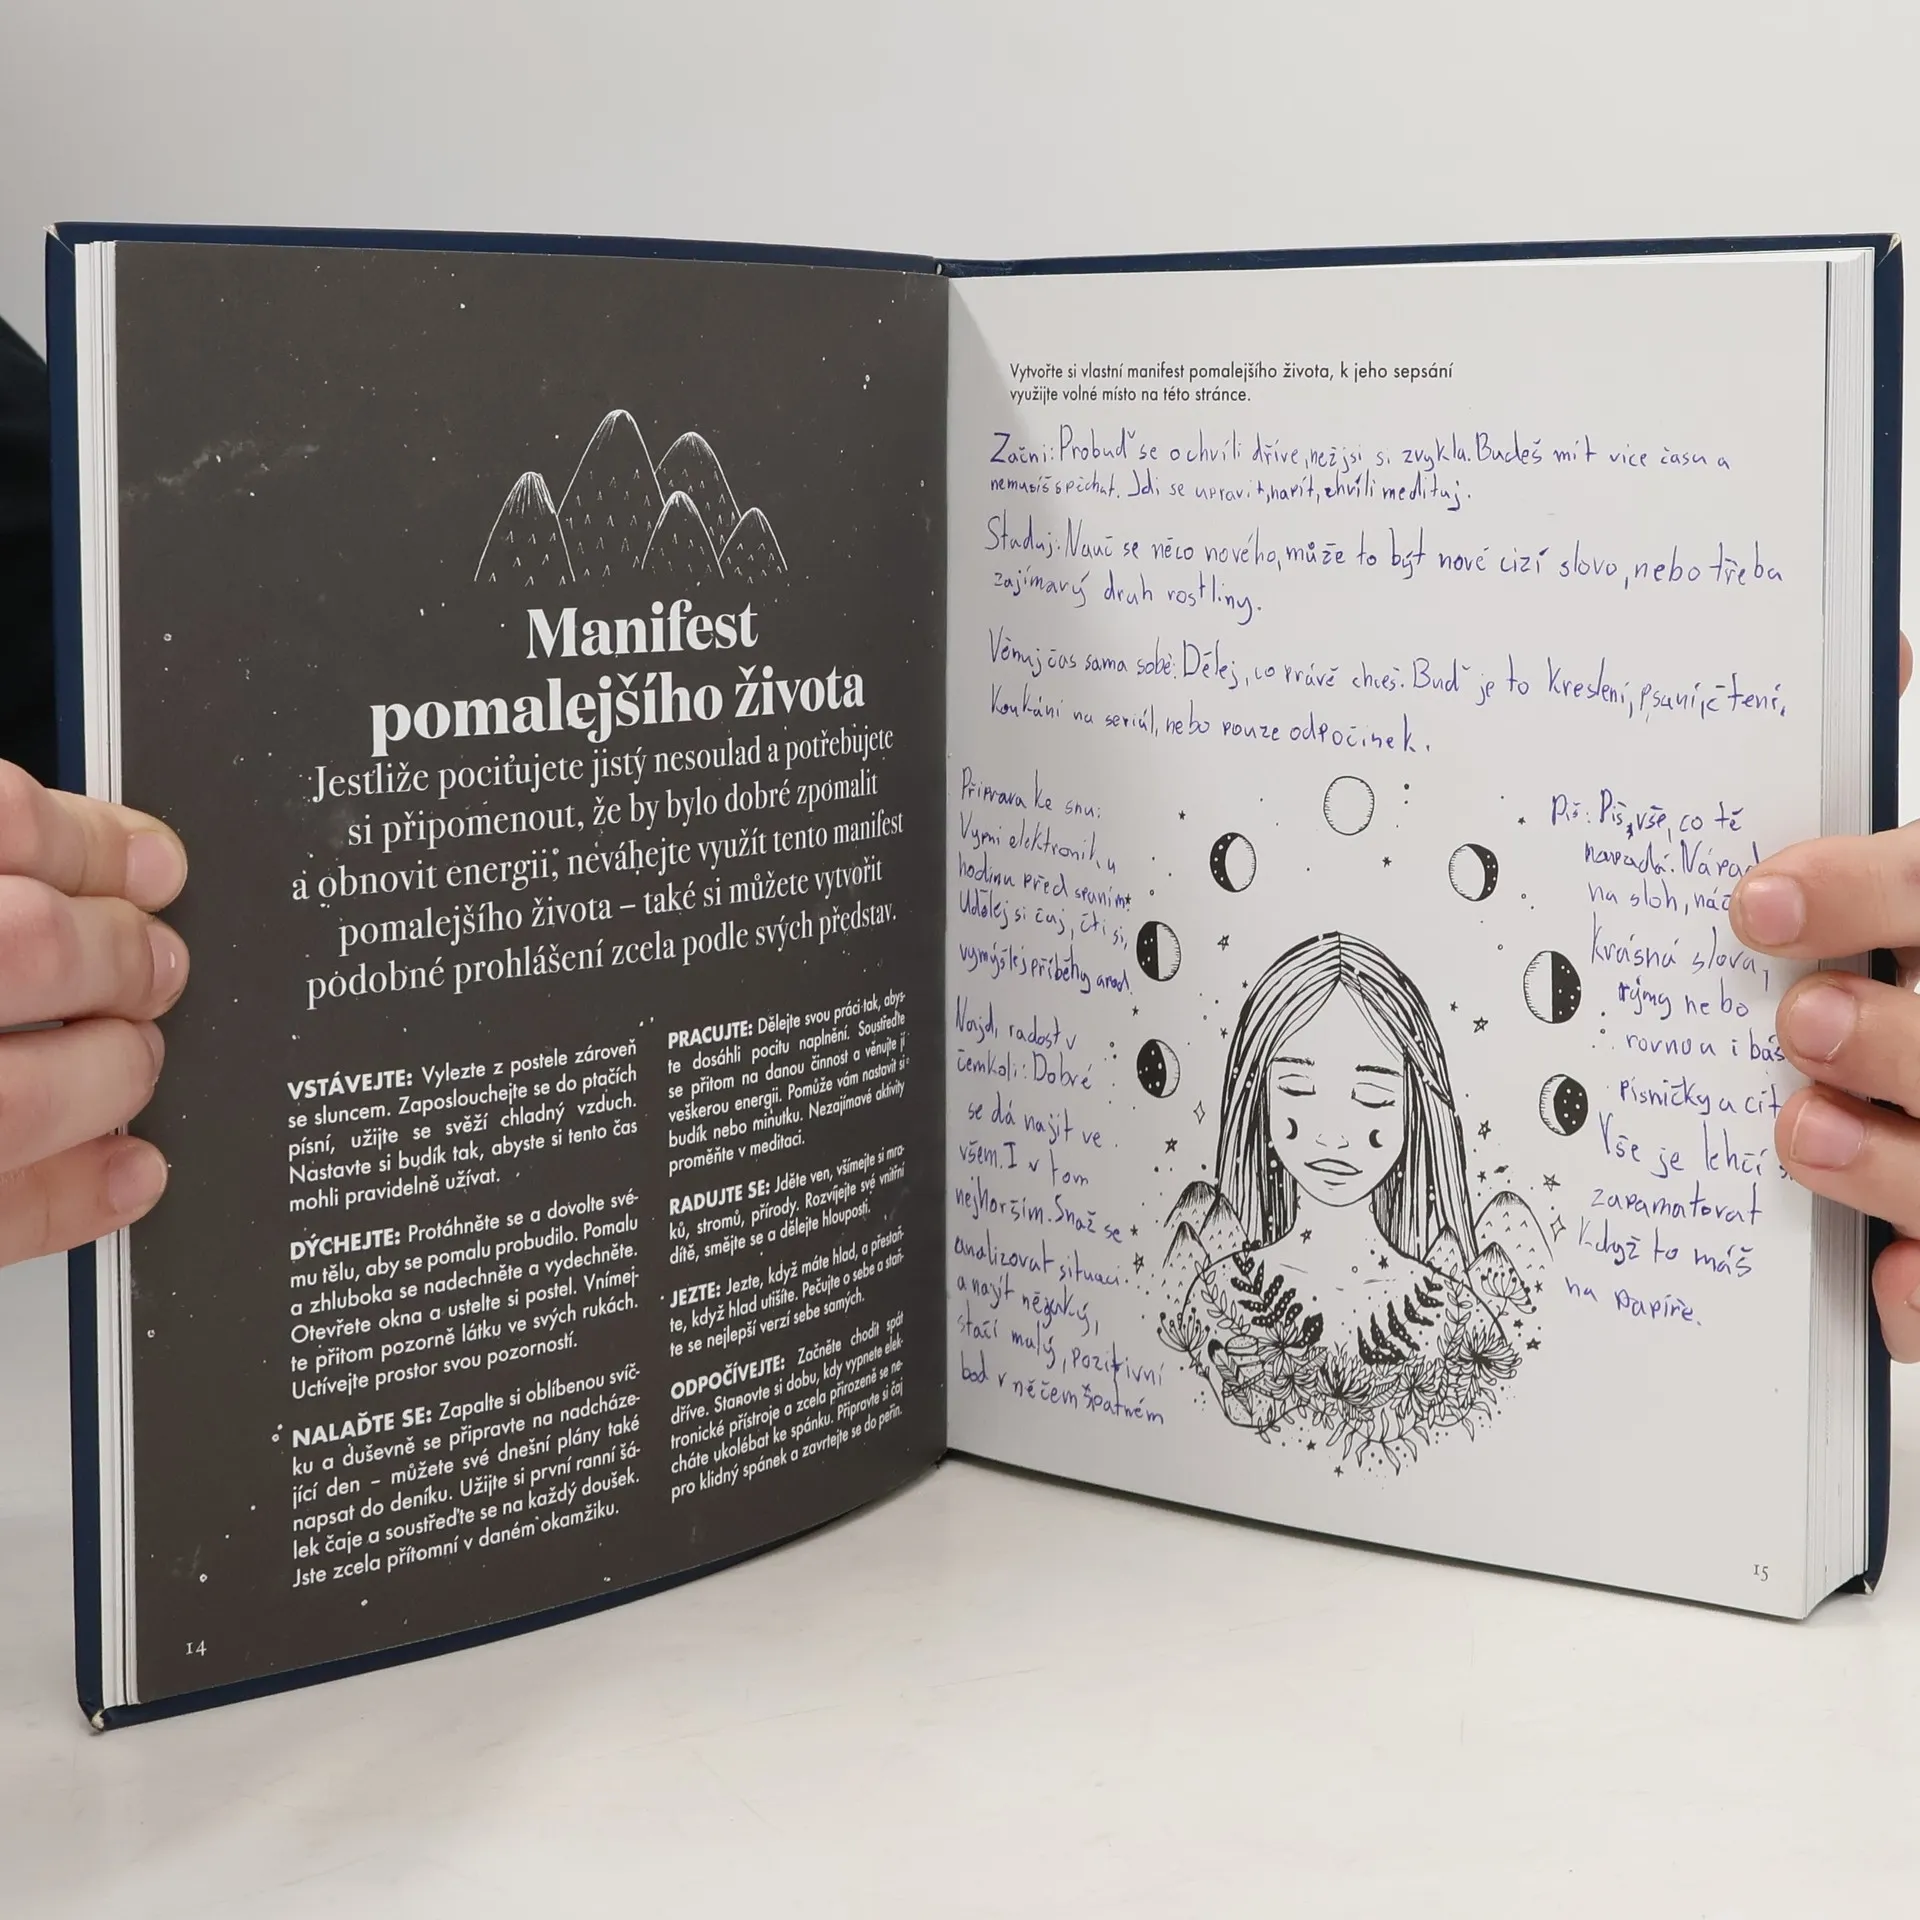 Manifest
pomalejšího života
Jestliže pociťujete jistý nesoulad a potřebujete
si připomenout, že by bylo dobré zpomalit
a obnovit energii, neváhejte využít tento manifest
pomalejšího života – také si můžete vytvořit
podobné prohlášení zcela podle svých představ.
VSTÁVEJTE: Vylezte z postele zároveň
se sluncem. Zaposlouchejte se do ptačích
písní, užijte se svěží chladný vzduch.
Nastavte si budík tak, abyste si tento čas
mohli pravidelně užívat.
DÝCHEJTE: Protáhněte se a dovolte své-
mu tělu, aby se pomalu probudilo. Pomalu
a zhluboka se nadechněte a vydechněte.
Otevřete okna a ustelte si postel. Vnímej-
te přitom pozorně látku ve svých rukách.
Uctívejte prostor svou pozorností.
NALAĎTE SE: Zapalte si oblíbenou svíč-
ku a duševně se připravte na nadcháze-
jící den – můžete své dnešní plány také
napsat do deníku. Užijte si první ranní šá-
lek čaje a soustřeďte se na každý doušek.
Jste zcela přítomní v daném okamžiku.
PRACUJTE: Dělejte svou práci tak, abys-
te dosáhli pocitu naplnění. Soustřeďte
se přitom na danou činnost a věnujte jí
veškerou energii. Pomůže vám nastavit si
budík nebo minutku. Nezajímavé aktivity
proměňte v meditaci.
RADUJTE SE: Jděte ven, všímejte si mra-
ků, stromů, přírody. Rozvíjejte své vnitřní
dítě, smějte se a dělejte hlouposti.
JEZTE: Jezte, když máte hlad, a přestaň-
te, když hlad utišíte. Pečujte o sebe a staň-
te se nejlepší verzí sebe samých.
ODPOČÍVEJTE: Začněte chodit spát
dříve. Stanovte si dobu, kdy vypnete elek-
tronické přístroje a zcela přirozeně se ne-
cháte ukolébat ke spánku. Připravte si čaj
pro klidný spánek a zavrtejte se do peřin.
14
Vytvořte si vlastní manifest pomalejšího života, k jeho sepsání
využijte volné místo na této stránce.
Začni: Probuď se o chvíli dříve, než jsi si zvykla. Budeš mít více času a
nemusíš spěchat. Jdi se upravit, napít, chvíli medituj.
Studuj: Nauč se něco nového, může to být nové cizí slovo, nebo třeba
zajímavý druh rostliny.
Věnuj čas sama sobě: Dělej, co právě chceš. Buď je to kreslení, psaní, čtení,
koukání na seriál, nebo pouze odpočinek.
Příprava ke snu:
Vypni elektroniku
hodinu před spaním.
Udělej si čaj, čti si,
vymýšlej příběhy
Najdi radost v
čemkoli: Dobré
se dá najít ve
všem. I v tom
nejhorším. Snaž se
analizovat situaci
a najít nějaký,
stačí malý, pozitivní
bod v něčem špatném
Piš: Piš vše, co tě
napadá.
na sloh,
Krásná slova,
rýmy nebo
rovnou i
písničky a
Vše je lehčí
zapamatovat
Když to máš
na papíře.
15